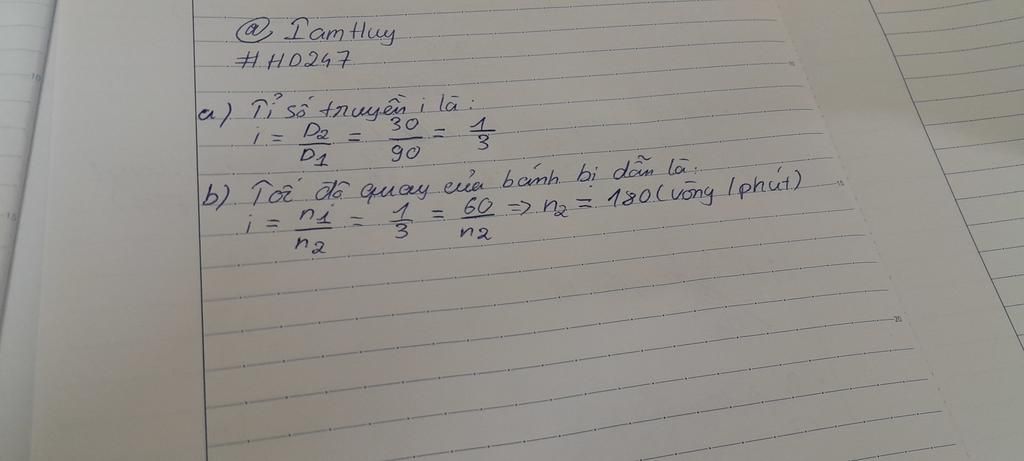 @ IamHuy
#HD247
a) Tỉ số truyền i là:
i = D2/D1 = 30/90 = 1/3
b) Tốc độ quay của bánh bị dẫn là:
i = n1/n2 = 1/3 = 60/n2 => n2 = 180 (vòng/phút)